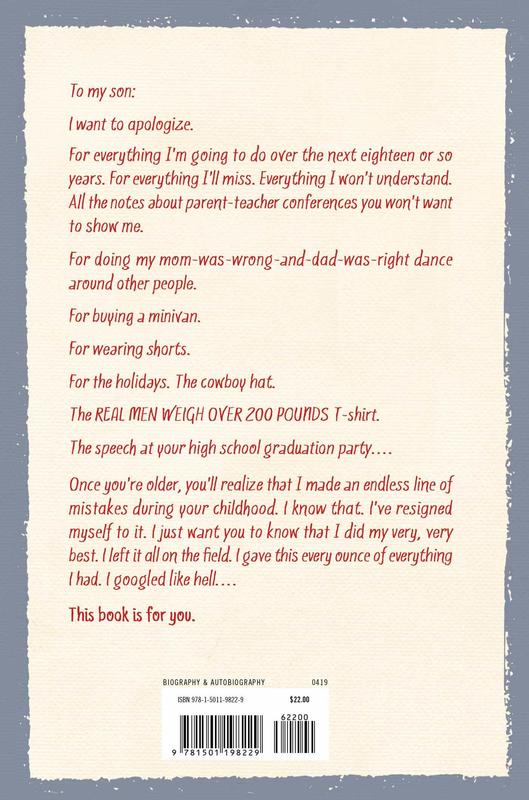 To my son:
I want to apologize.
For everything I'm going to do over the next eighteen or so
years. For everything I'll miss. Everything I won't understand.
All the notes about parent-teacher conferences you won't want
to show me.
For doing my mom-was-wrong-and-dad-was-right dance
around other people.
For buying a minivan.
For wearing shorts.
For the holidays. The cowboy hat.
The REAL MEN WEIGH OVER 200 POUNDS T-shirt.
The speech at your high school graduation party....
Once you're older, you'll realize that I made an endless line of
mistakes during your childhood. I know that. I've resigned
myself to it. I just want you to know that I did my very, very
best. I left it all on the field. I gave this every ounce of everything
I had. I googled like hell....
This book is for you.
BIOGRAPHY & AUTOBIOGRAPHY 0419
ISBN 978-1-5011-9822-9 $22.00
62200
9 781501 198229